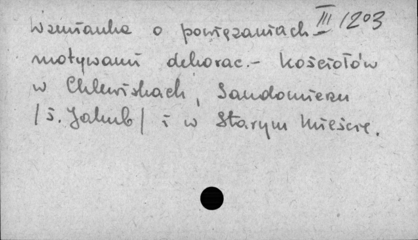 Wzmianka o powiązaniach III/1203
motywami dekorac.- kościołów
w Chlewiskach, Sandomierzu
/ś. Jakub/ i w Starym Mieście.